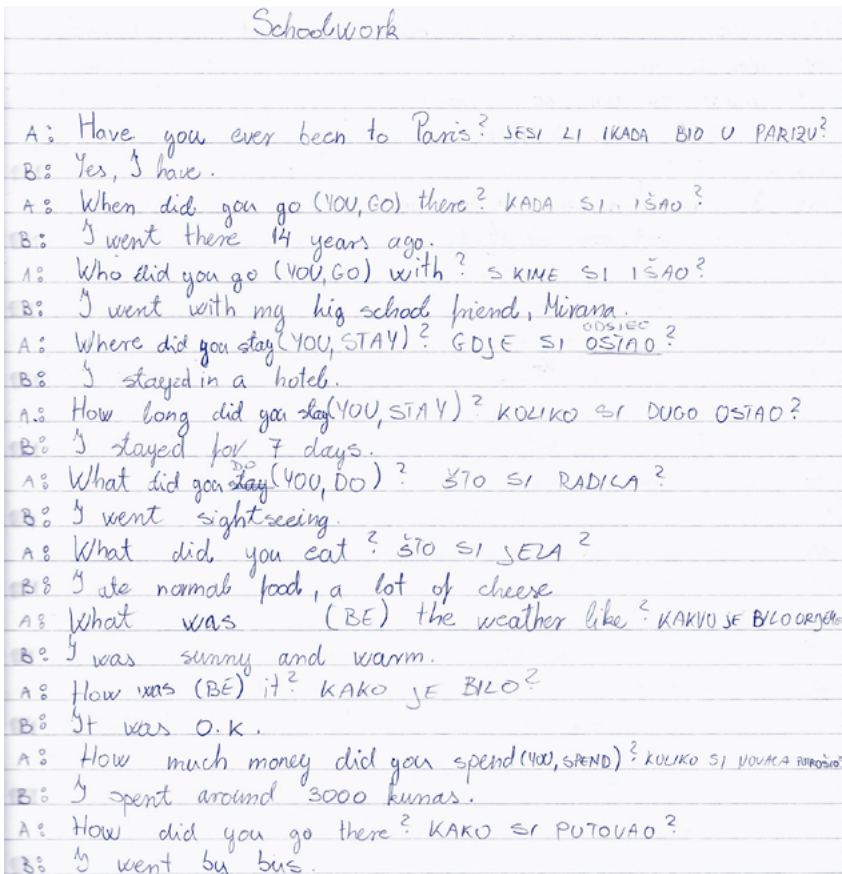 Schoolwork
A: Have you ever been to Paris? JESI LI IKADA BIO U PARIZU?
B: Yes, I have.
A: When did you go (YOU, GO) there? KADA SI IŠAO?
B: I went there 14 years ago.
A: Who did you go (YOU, GO) with? S KIME SI IŠAO?
B: I went with my hig school friend, Mirana.
ODSJEO
A: Where did you stay (YOU, STAY)? GDJE SI OSTAO?
B: I stayed in a hotel.
A: How long did you stay (YOU, STAY)? KOLIKO SI DUGO OSTAO?
B: I stayed for 7 days.
DO
A: What did you stay (YOU, DO)? ŠTO SI RADILA?
B: I went sightseeing.
A: What did you eat? ŠTO SI JELA?
B: I ate normal food, a lot of cheese
A: What was (BE) the weather like? KAKVO JE BILO
B: I was sunny and warm.
A: How was (BE) it? KAKO JE BILO?
B: It was O.K.
A: How much money did you spend (YOU, SPEND)? KOLIKO SI NOVACA POTROŠIO?
B: I spent around 3000 kunas.
A: How did you go there? KAKO SI PUTOVAO?
B: I went by bus.